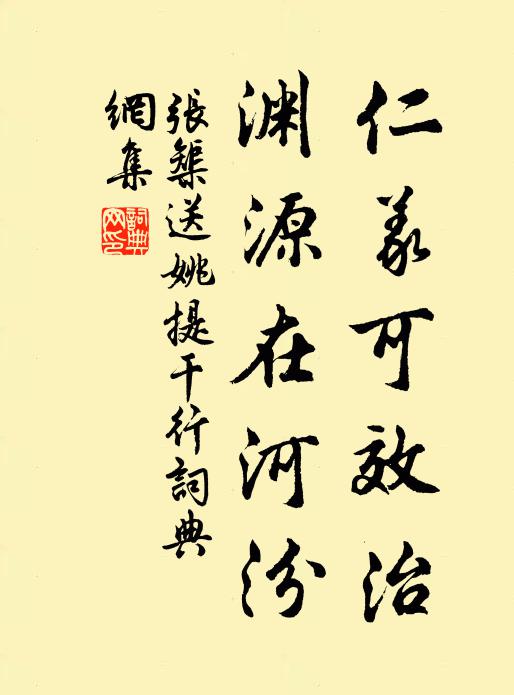 仁義可效治
淵源在河汾
張榘送姚提干行詞典
網集
詞典
网印